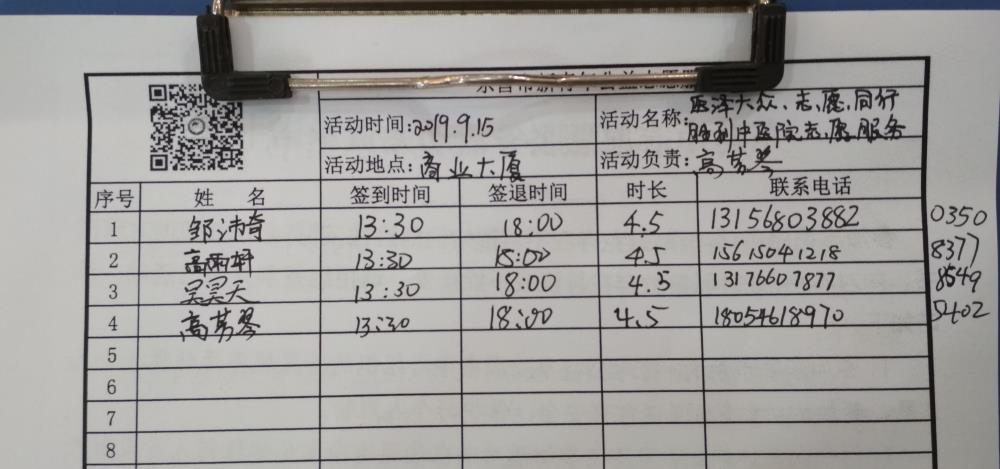 活动时间:2019.9.15
活动名称:医泽大众、志愿同行
胜利中医院志愿服务
活动地点:商业大厦
活动负责:高苇琴
序号 姓名 签到时间 签退时间 时长 联系电话
1 邹沛奇 13:30 18:00 4.5 13156803882 0350
2 高雨轩 13:30 18:00 4.5 15615041218 8377
3 吴昊天 13:30 18:00 4.5 13176607877 8549
4 13:30 18:00 4.5 18054618970 5402
5
6
7
8